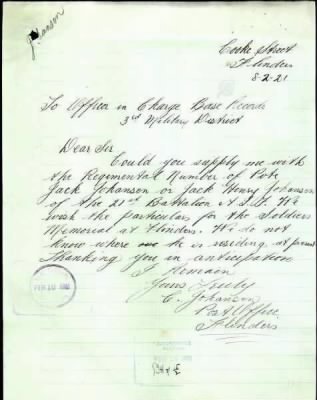 Johanson
Cooke Street
Flinders
8-2-21
To Officer in Charge Base Records
3rd Military District
Dear Sir
Could you supply me with
the Regimental Number of Pote
Jack Johanson or Jack Henry Johanson
of the 21st Battalion A.I.F. We
wish the particulars for the Soldiers
Memorial at Flinders. We do not
know where he is residing at present
Thanking you in anticipation
I Remain
Yours Truly
C. Johanson
Post Office
Flinders
FEB 10 1921